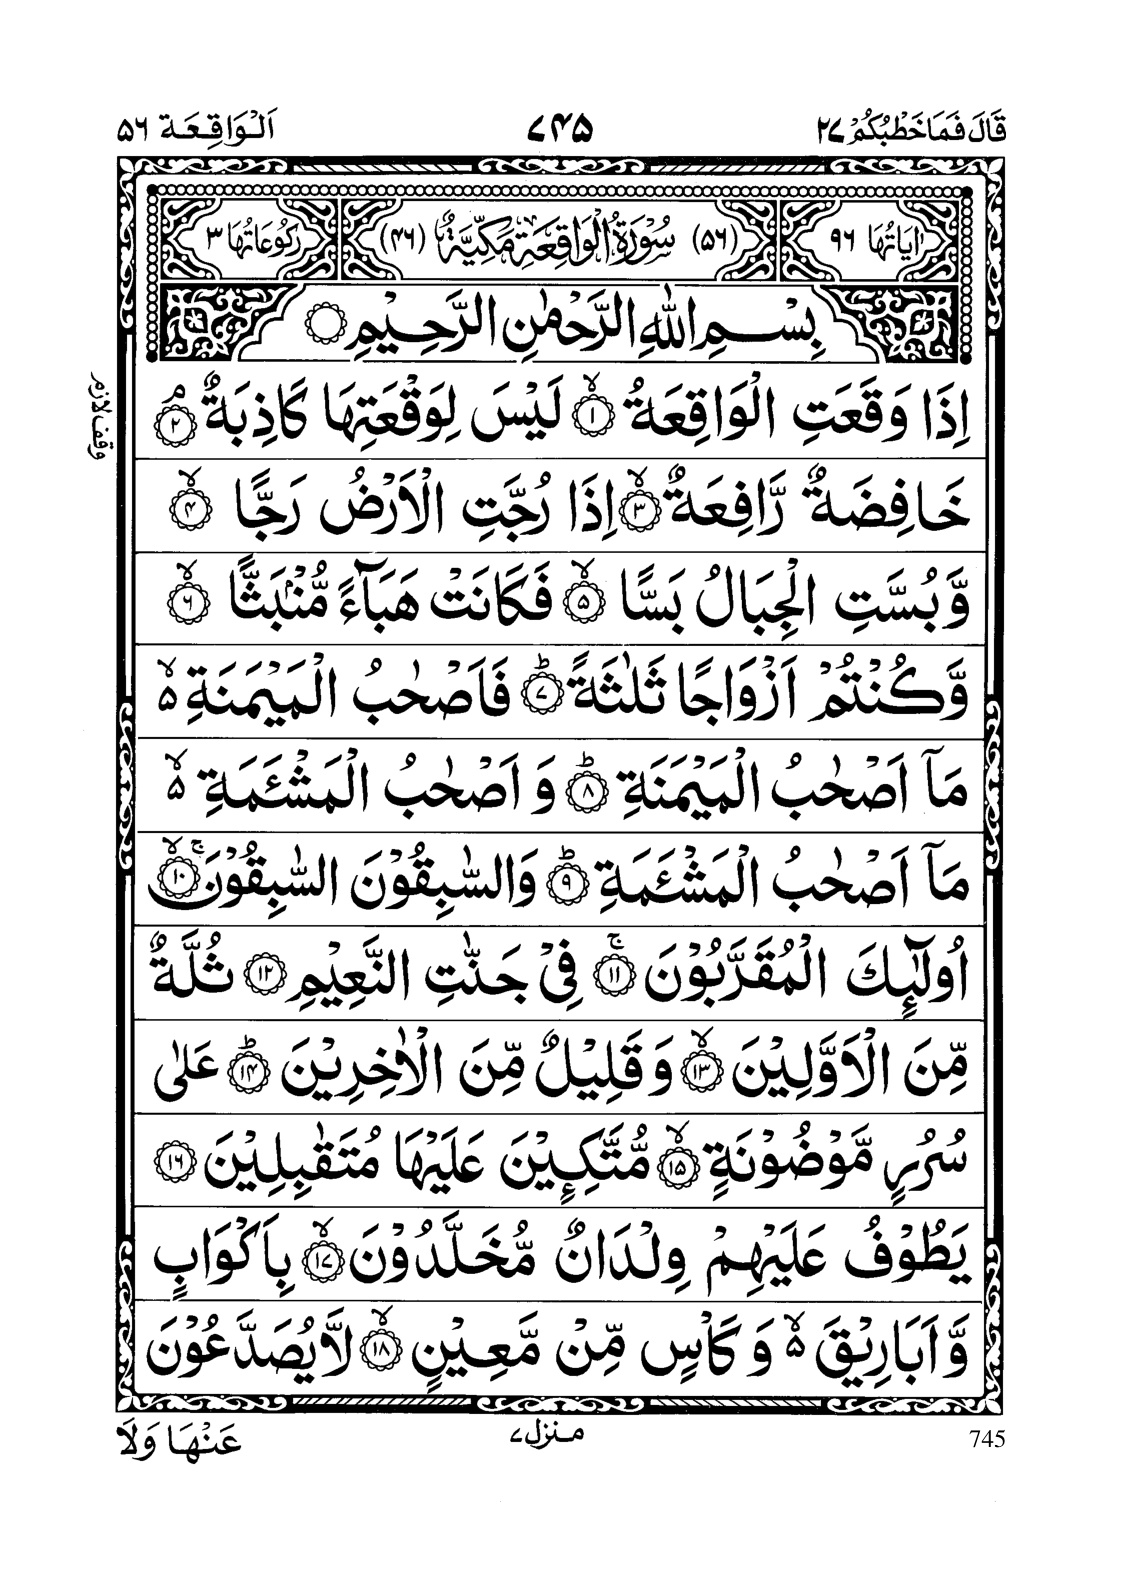 قَالَ فَمَا خَطْبُكُمْ ٢٧ ٧۴۵ اَلْوَاقِعَة ۵۶
اٰيَاتُهَا ٩٦ (۵۶) سُوْرَةُ الْوَاقِعَةِ مَكِّيَّةٌ (۴۶) رُكُوْعَاتُهَا ٣
بِسْمِ اللّٰهِ الرَّحْمٰنِ الرَّحِيْمِ ۝
اِذَا وَقَعَتِ الْوَاقِعَةُ ۙ﴿١﴾ لَيْسَ لِوَقْعَتِهَا كَاذِبَةٌ ۘ﴿٢﴾
وقف لازم
خَافِضَةٌ رَّافِعَةٌ ۙ﴿٣﴾ اِذَا رُجَّتِ الْاَرْضُ رَجًّا ۙ﴿۴﴾
وَّبُسَّتِ الْجِبَالُ بَسًّا ۙ﴿۵﴾ فَكَانَتْ هَبَآءً مُّنْۢبَثًّا ۙ﴿۶﴾
وَّكُنْتُمْ اَزْوَاجًا ثَلٰثَةً ؕ﴿٧﴾ فَاَصْحٰبُ الْمَيْمَنَةِ ۙ۵
مَآ اَصْحٰبُ الْمَيْمَنَةِ ؕ﴿٨﴾ وَ اَصْحٰبُ الْمَشْـَٔمَةِ ۙ۵
مَآ اَصْحٰبُ الْمَشْـَٔمَةِ ؕ﴿٩﴾ وَالسّٰبِقُوْنَ السّٰبِقُوْنَ ۚۙ﴿١٠﴾
اُولٰٓئِكَ الْمُقَرَّبُوْنَ ۚ﴿١١﴾ فِيْ جَنّٰتِ النَّعِيْمِ ﴿١٢﴾ ثُلَّةٌ
مِّنَ الْاَوَّلِيْنَ ۙ﴿١٣﴾ وَقَلِيْلٌ مِّنَ الْاٰخِرِيْنَ ؕ﴿١۴﴾ عَلٰى
سُرُرٍ مَّوْضُوْنَةٍ ۙ﴿١۵﴾ مُّتَّكِـِٕيْنَ عَلَيْهَا مُتَقٰبِلِيْنَ ﴿١۶﴾
يَطُوْفُ عَلَيْهِمْ وِلْدَانٌ مُّخَلَّدُوْنَ ۙ﴿١٧﴾ بِاَكْوَابٍ
وَّاَبَارِيْقَ ۙ۵ وَكَاْسٍ مِّنْ مَّعِيْنٍ ۙ﴿١٨﴾ لَّا يُصَدَّعُوْنَ
عَنْهَا وَلَا
منزل ٧
745